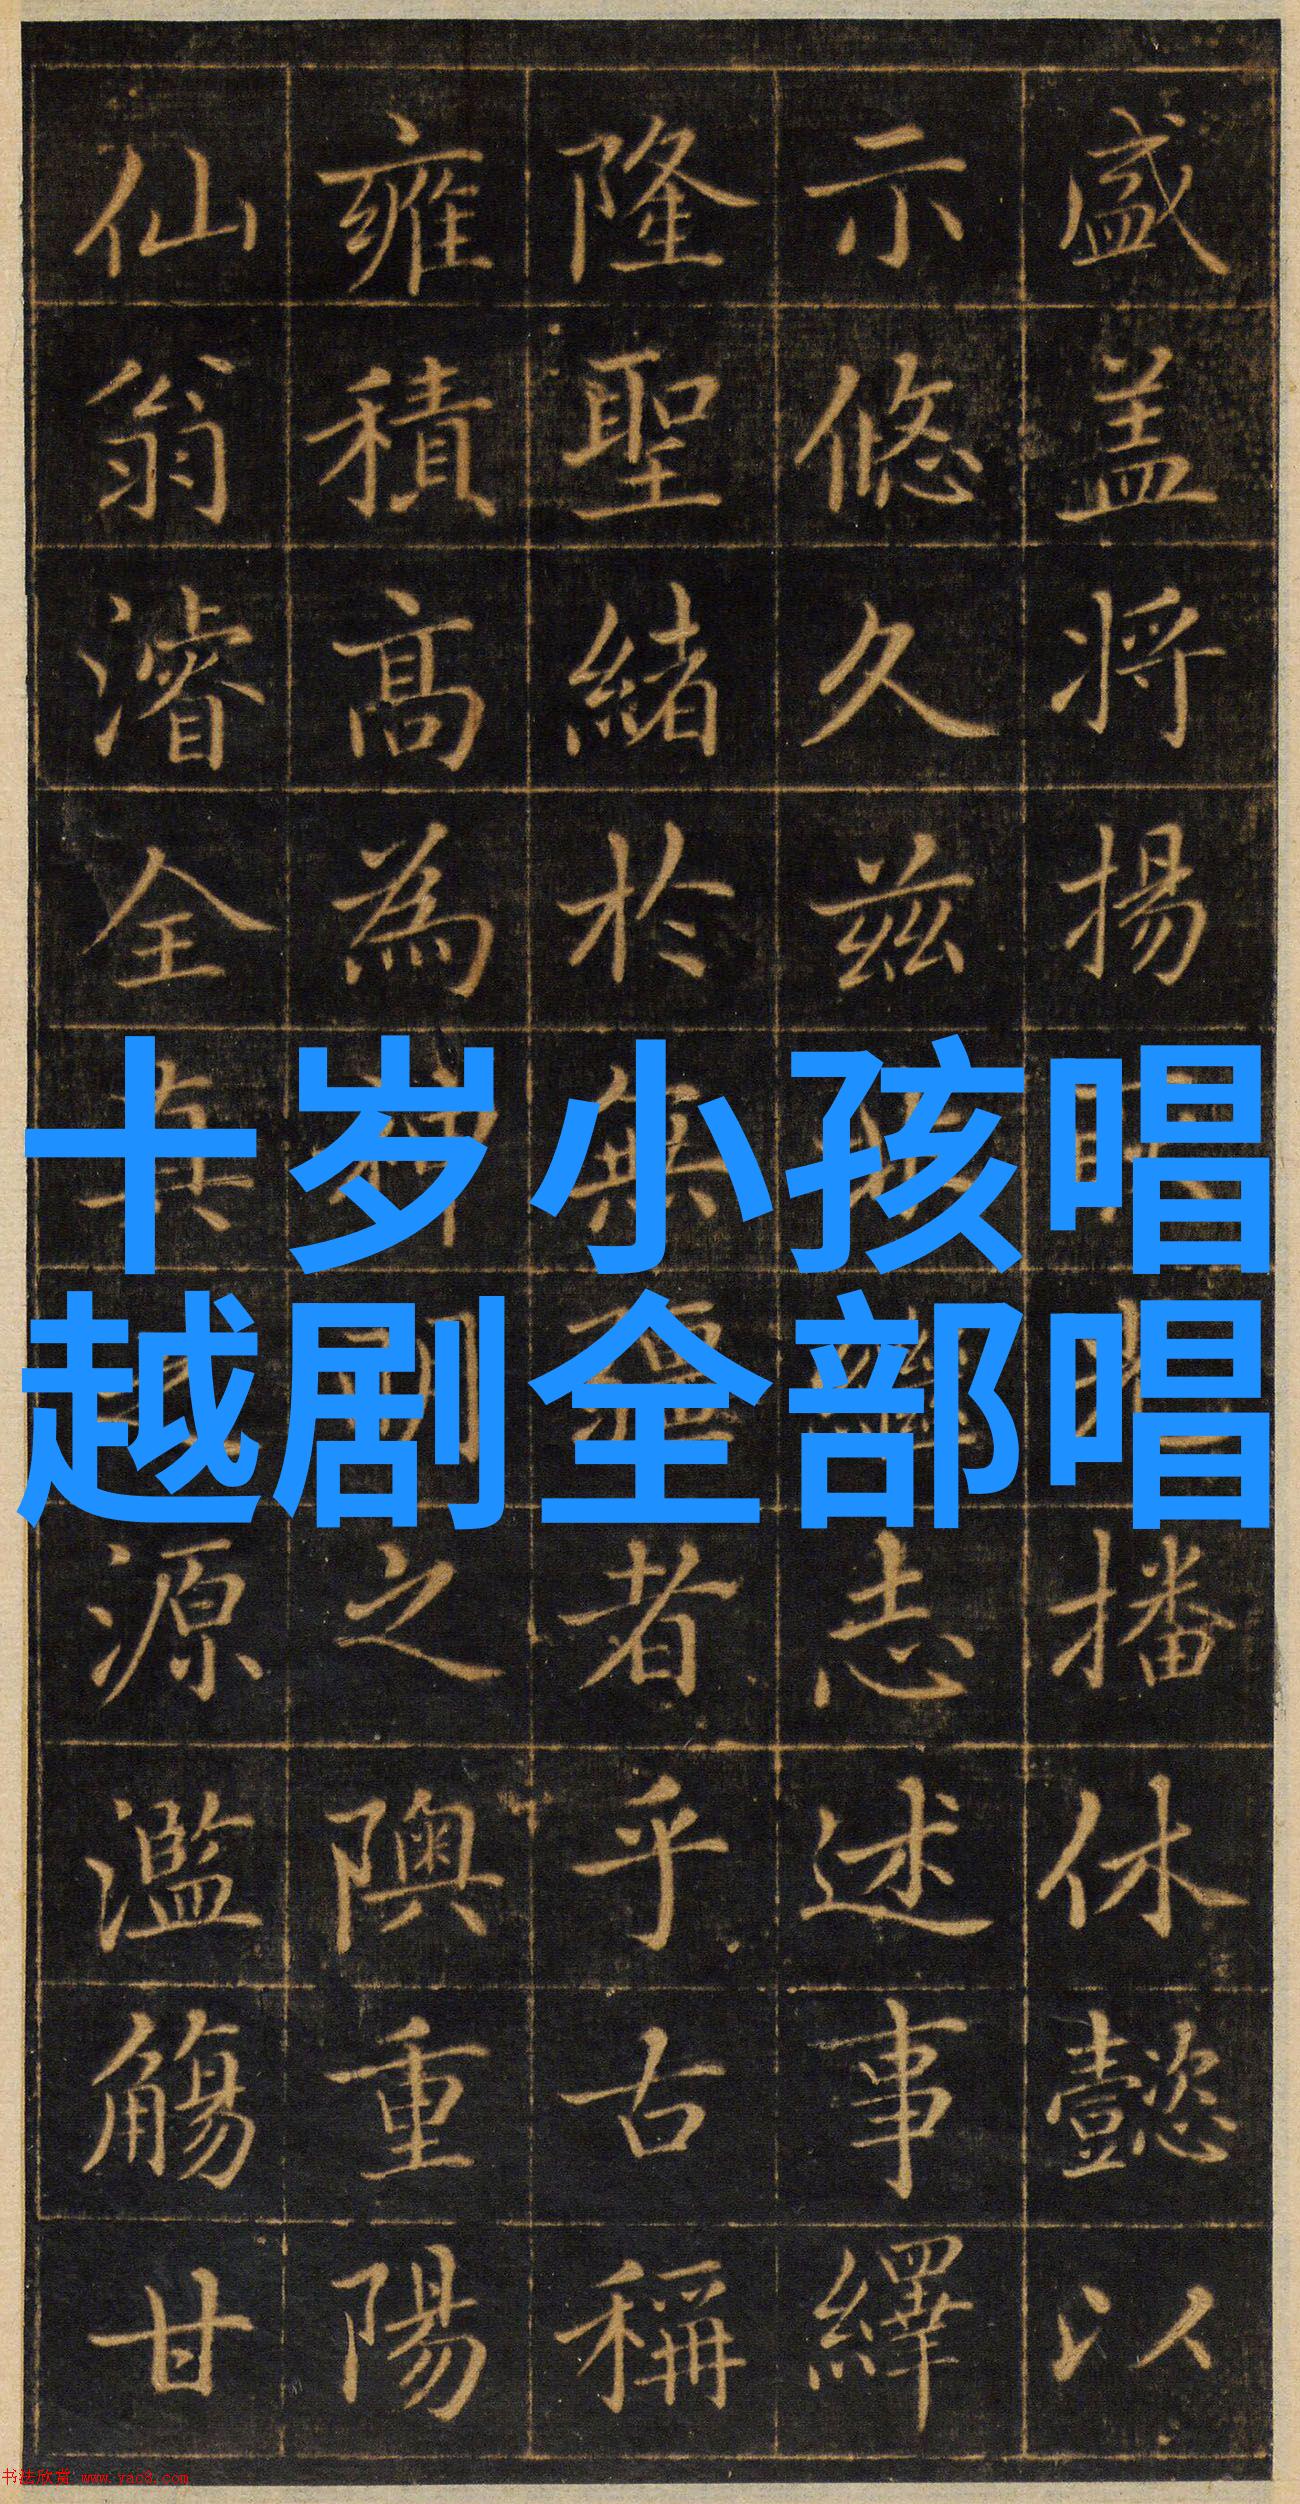 盛盖将揚播休懿以
示悠久兹志述事繹
隆聖緒於無疆者乎古稱
雍積高為神明之隩重陽
仙翁濬全真源濫觴甘
十岁小孩唱
越剧全部唱
书法欣赏 www.yac8.com